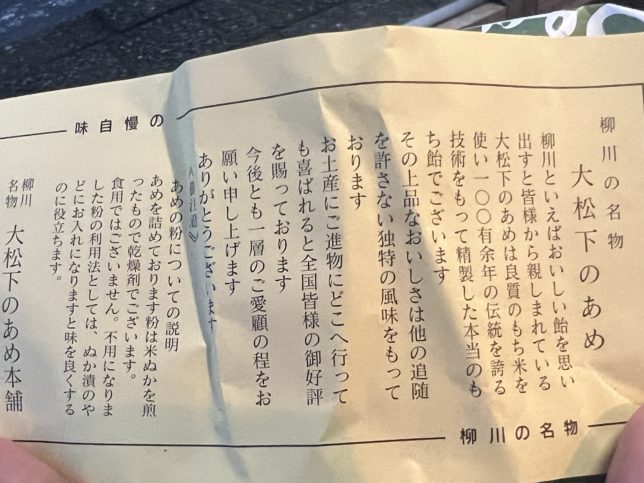 柳川の名物
大松下のあめ
柳川といえばおいしい飴を思い
出すと皆様から親しまれている
大松下のあめは良質のもち米を
使い一〇〇有余年の伝統を誇る
技術をもって精製した本当のも
ち飴でございます
その上品なおいしさは他の追随
を許さない独特の風味をもって
おります
お土産にご進物にどこへ行って
も喜ばれると全国皆様の御好評
を賜っております
今後とも一層のご愛顧の程をお
願い申し上げます
ありがとうございます
《御注意》
あめの粉についての説明
あめを詰めております粉は米ぬかを煎
ったもので乾燥剤でございます。
食用ではございません。不用になりま
した粉の利用法としては、ぬか漬のや
どにお入れになりますと味を良くする
のに役立ちます。
柳川
名物 大松下のあめ本舗
味自慢の
柳川の名物